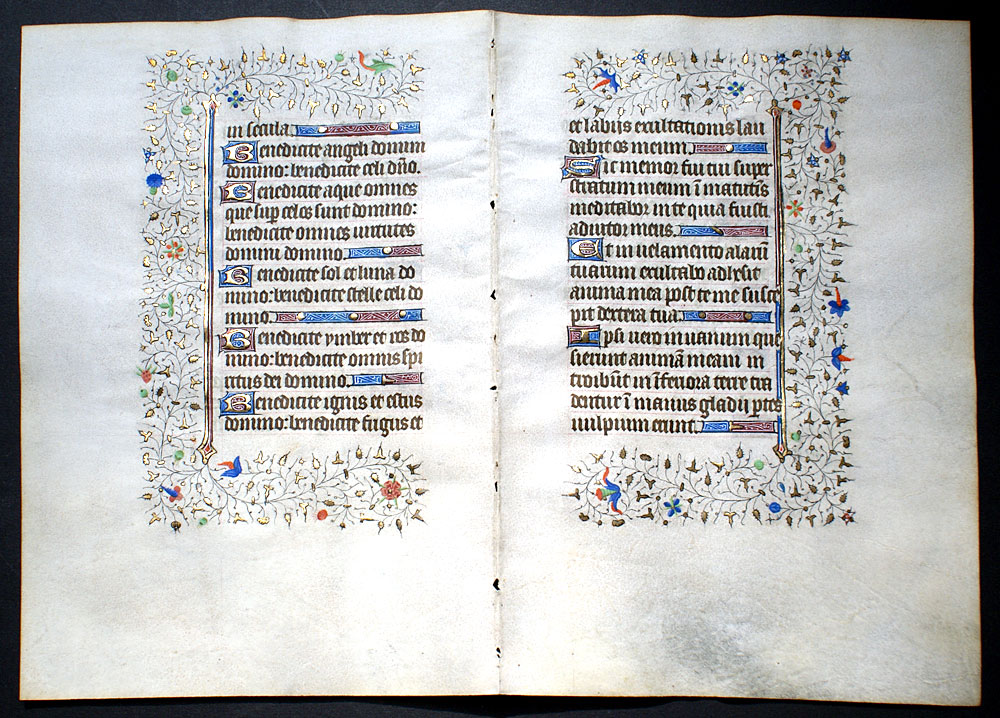 in secula.
Benedicite angeli domini
domino: benedicite celi dño.
Benedicite aque omnes
que sup celos sunt domino:
benedicite omnes uirtutes
domini domino.
Benedicite sol et luna do
mino: benedicite stelle celi do
mino.
Benedicite ymber et ros do
mino: benedicite omnis spi
ritus dei domino.
Benedicite ignis et estus
domino: benedicite frigus et
et labijs exultationis lau
dabit os meum.
Sic memor fui tui super
stratum meum ĩ matutĩs
meditabor in te quia fuisti
adiutor meus.
Et in uelamento alarũ
tuarum exultabo adhesit
anima mea post te me susce
pit dextera tua.
Ipsi uero in uanum que
sierunt animã meam in
troibũt in ĩferiora terre tra
dentur ĩ manus gladij ptes
uulpium erunt.